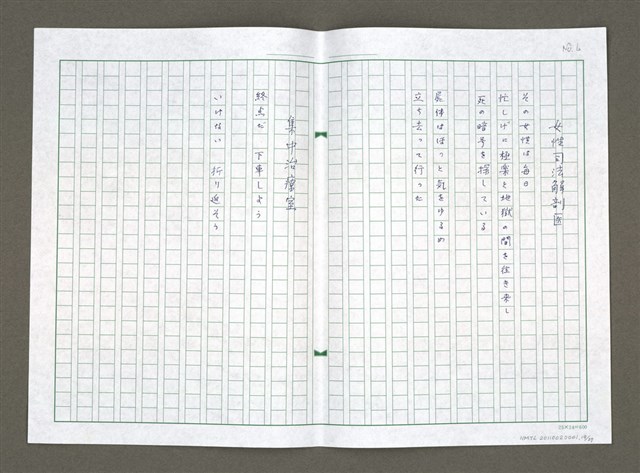 No. 6
女性司法解剖医
その女性は毎日
忙しげに極楽と地獄の間を往き来し
死の暗号を探している
屍体はほっと気をゆるめ
立ち去って行った
集中治療室
終点だ　下車しよう
いけない　折り返そう